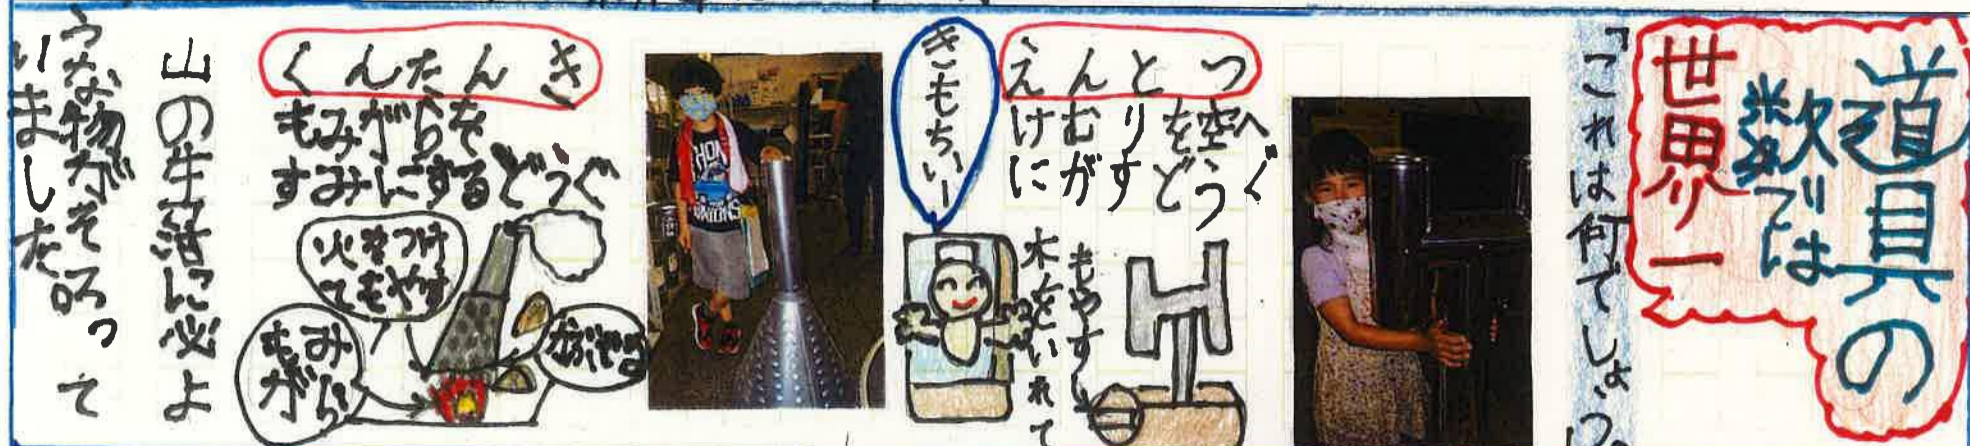 道具の
数では
世界一
「これは何でしょう。
えんとつ
けむりを空へ
にがすどうぐ
木をいれて
もやす
きもちいー
くんたんき
もみがらを
すみにするどうぐ
火をつけ
てもやす
もみ
がら
山の生活に必よ
うな物がそろって
いました。